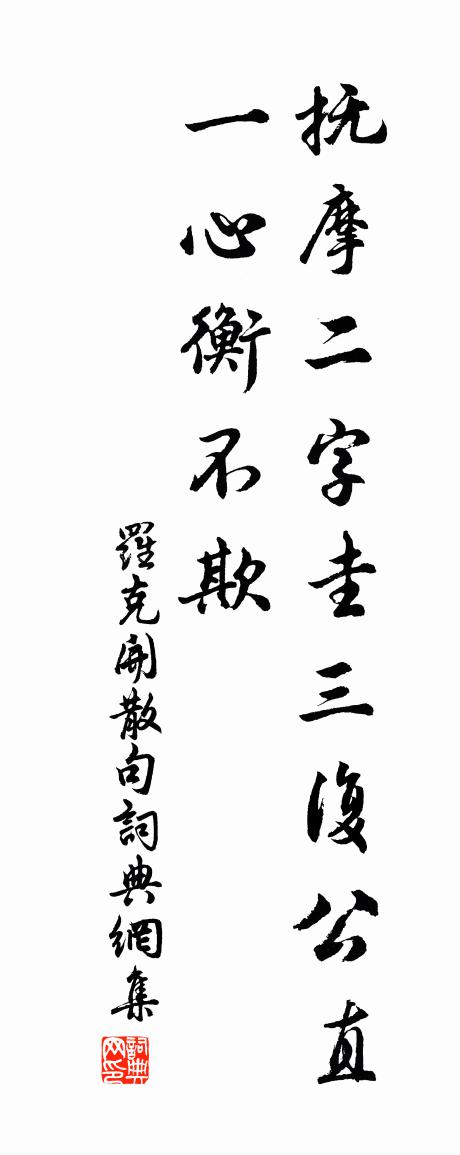 抚摩二字圭三復公直
一心衡不欺
羅克開散句詞典網集
詞典网印